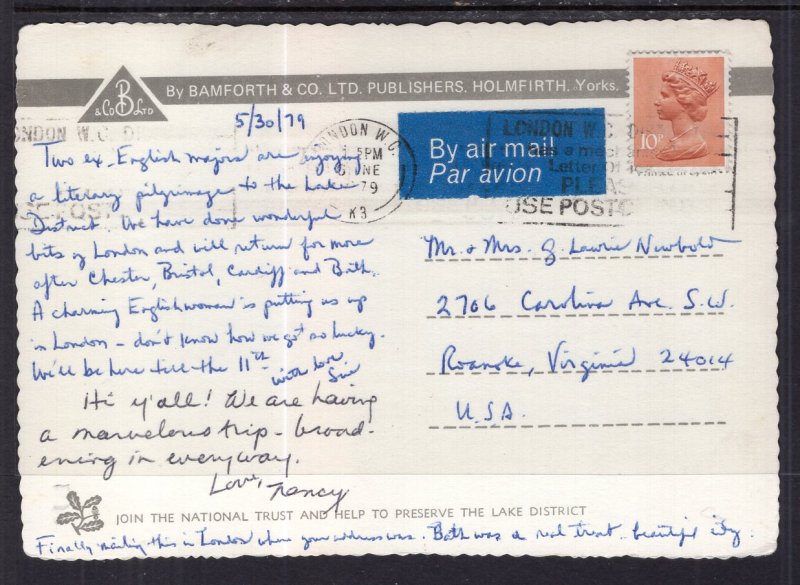 & Co B LTD
By BAMFORTH & CO. LTD. PUBLISHERS. HOLMFIRTH, Yorks.
5/30/79
Two ex-English majors are enjoying
a literary pilgrimage to the Lake
District. We have done wonderful
bits of London and will return for more
after Chester, Bristol, Cardiff and Bath.
A charming Englishwoman is putting us up
in London – don't know how we got so lucky.
We'll be here till the 11th
with love,
Sue
Hi y'all! We are having
a marvelous trip – broad-
ening in every way.
Love, Nancy
LONDON W.C.
5PM
NE
79
K3
By air mail
Par avion
LONDON W.C.
USE POSTC
10P
Mr. & Mrs. J. Lawrie Newbold
2706 Carolina Ave. S.W.
Roanoke, Virginia 24014
U.S.A.
JOIN THE NATIONAL TRUST AND HELP TO PRESERVE THE LAKE DISTRICT
Finally mailing this in London where your address was. Bath was a real treat – beautiful city.